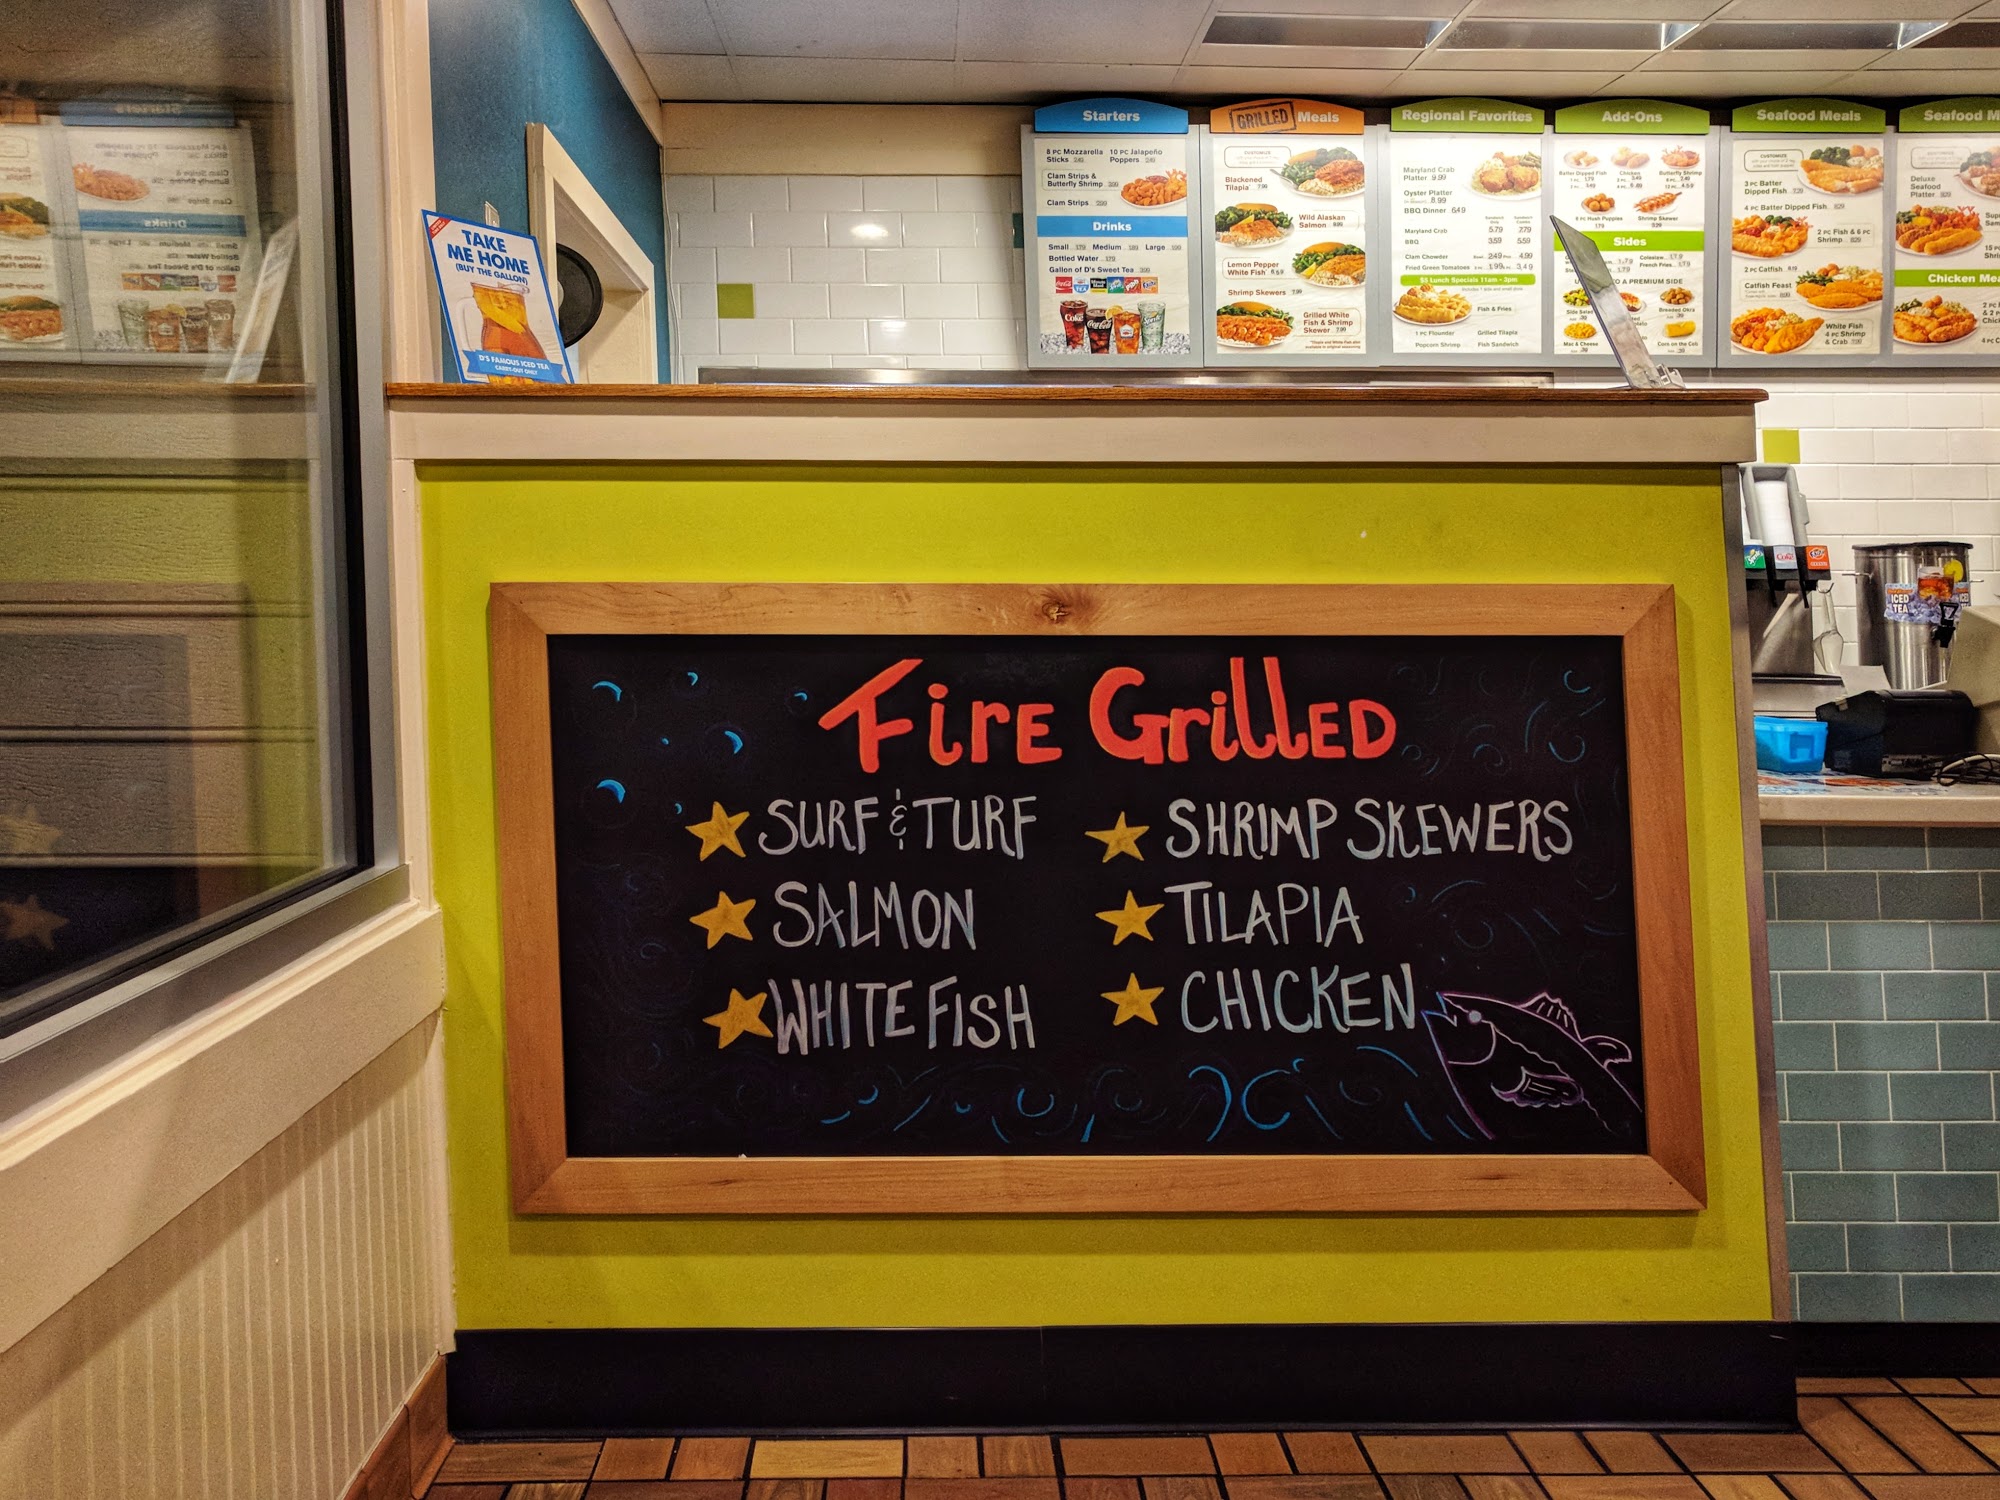 TAKE
ME HOME
(BUY THE GALLON)
D'S FAMOUS ICED TEA
CARRY-OUT ONLY
Starters
8 PC Mozzarella Sticks
10 PC Jalapeño Poppers
Clam Strips &
Butterfly Shrimp
Clam Strips
Drinks
Small Medium Large
Bottled Water
Gallon of D's Sweet Tea
GRILLED Meals
CUSTOMIZE
Blackened
Tilapia
Wild Alaskan
Salmon
Lemon Pepper
White Fish
Shrimp Skewers
Grilled White
Fish & Shrimp
Skewer
Regional Favorites
Maryland Crab
Platter 9.99
Oyster Platter
8.99
BBQ Dinner 6.49
Maryland Crab 5.79
BBQ 3.59 5.59
Clam Chowder 2.49 4.99
Fried Green Tomatoes
$5 Lunch Specials 11am - 3pm
Fish & Fries
1 PC Flounder
Grilled Tilapia
Popcorn Shrimp
Fish Sandwich
Add-Ons
Batter Dipped Fish
Chicken
Butterfly Shrimp
6 PC Hush Puppies
Shrimp Skewer
Sides
Coleslaw
French Fries
TO A PREMIUM SIDE
Side Salad
Breaded Okra
Mac & Cheese
Corn on the Cob
Seafood Meals
CUSTOMIZE
3 PC Batter
Dipped Fish
4 PC Batter Dipped Fish
2 PC Fish & 6 PC
Shrimp
2 PC Catfish
Catfish Feast
White Fish
4 PC Shrimp
& Crab
Seafood M
Deluxe
Seafood
Platter
Chicken Mea
ICED
TEA
FirE GrillED
SURF & TURF
SALMON
WHITE FISH
SHRIMP SKEWERS
TILAPIA
CHICKEN